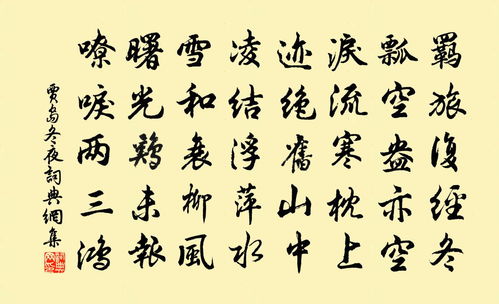 羈旅復經冬
瓢空盎亦空
淚流寒枕上
迹絶舊山中
凌結浮萍水
雪和衰柳風
曙光鷄未報
嘹唳两三鴻
賈島冬夜詞典網集